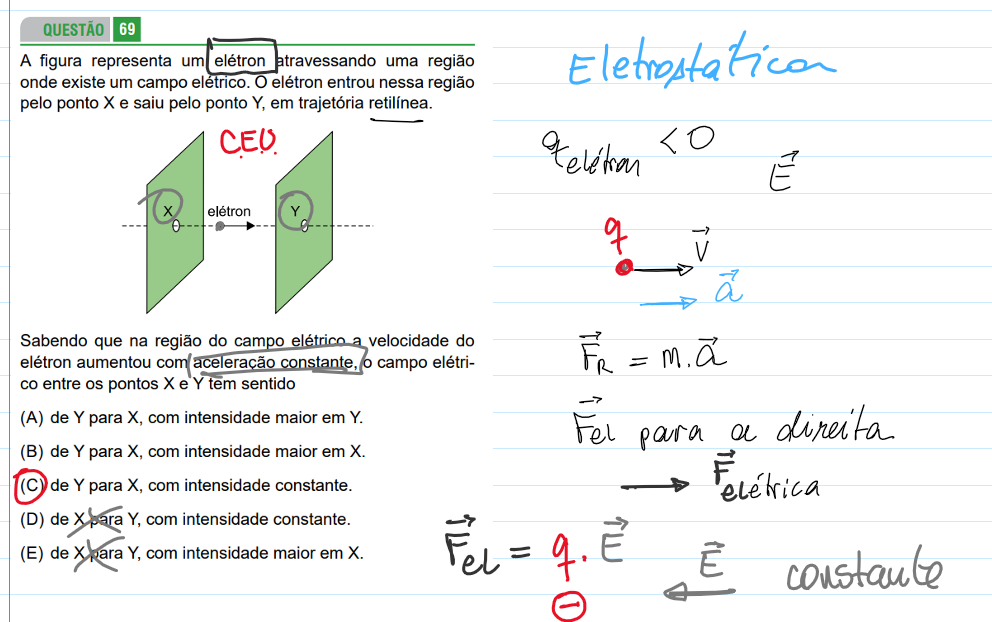 QUESTÃO 69
A figura representa um elétron atravessando uma região
onde existe um campo elétrico. O elétron entrou nessa região
pelo ponto X e saiu pelo ponto Y, em trajetória retilínea.
C.E.U.
X
elétron
Y
Sabendo que na região do campo elétrico a velocidade do
elétron aumentou com aceleração constante, o campo elétri-
co entre os pontos X e Y tem sentido
(A) de Y para X, com intensidade maior em Y.
(B) de Y para X, com intensidade maior em X.
(C) de Y para X, com intensidade constante.
(D) de X para Y, com intensidade constante.
(E) de X para Y, com intensidade maior em X.
Eletrostática
q elétron < 0
E
q
V
a
F R = m.a
Fel para a direita
F elétrica
F el = q. E
E
constante